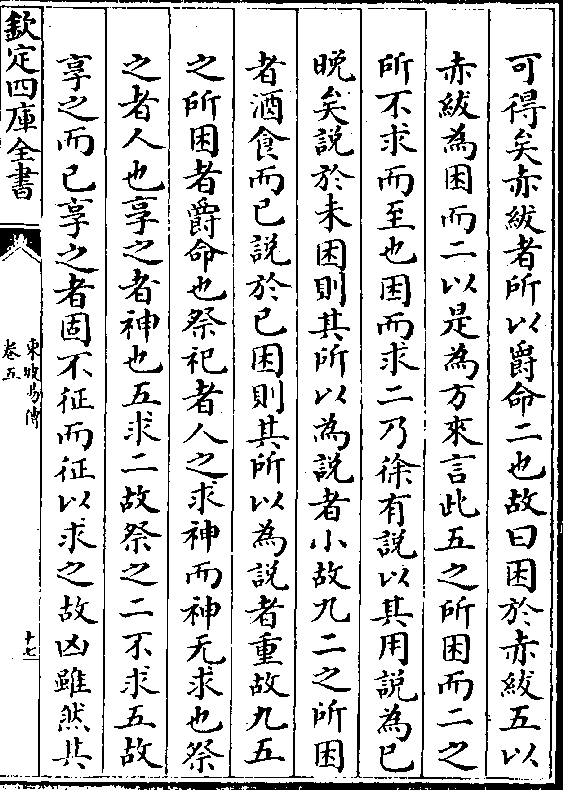 可得矣赤紱者所以爵命二也故曰困於赤紱五以
赤紱為困而二以是為方來言此五之所困而二之
所不求而至也困而求二乃徐有說以其用說為已
晚矣說於未困則其所以為說者小故九二之所困
者酒食而已說於已困則其所以為說者重故九五
之所困者爵命也祭祀者人之求神而神无求也祭
之者人也享之者神也五求二故祭之二不求五故
享之而已享之者固不征而征以求之故凶雖然其
欽定四庫全書
東坡易傳
卷五
十七